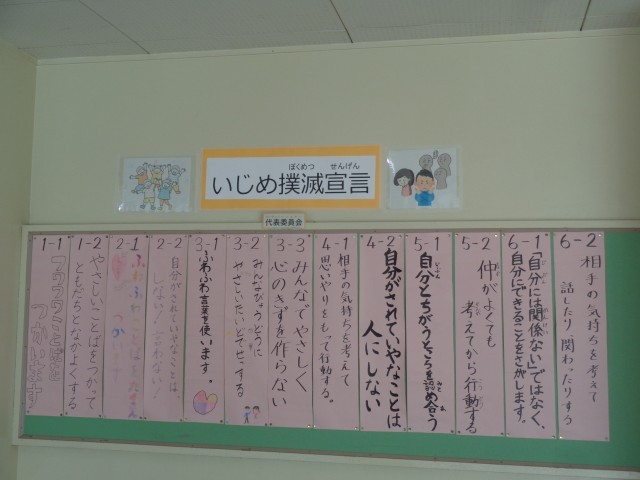 いじめ撲滅宣言
ぼくめつ せんげん
代表委員会
1-1
フワフワことばを
つかいます
1-2
やさしいことばをつかって
ともだちとなかよくする
2-1
ふわふわ
つか
2-2
自分がされていやなことは、
しない、いわない。
3-1
ふわふわ言葉を使います。
3-2
みんなびょうどうに
やさしい
する
3-3
みんなでやさしく
心のきずを作らない
4-1
相手の気持ちを考えて
思いやりをもって行動する。
4-2
自分がされていやなことは
人にしない
5-1
自分とちがうところを認め合う
5-2
仲がよくても
考えてから行動する
6-1
「自分には関係ない」ではなく、
自分にできることをさがします。
6-2
相手の気持ちを考えて
話したり関わったりする